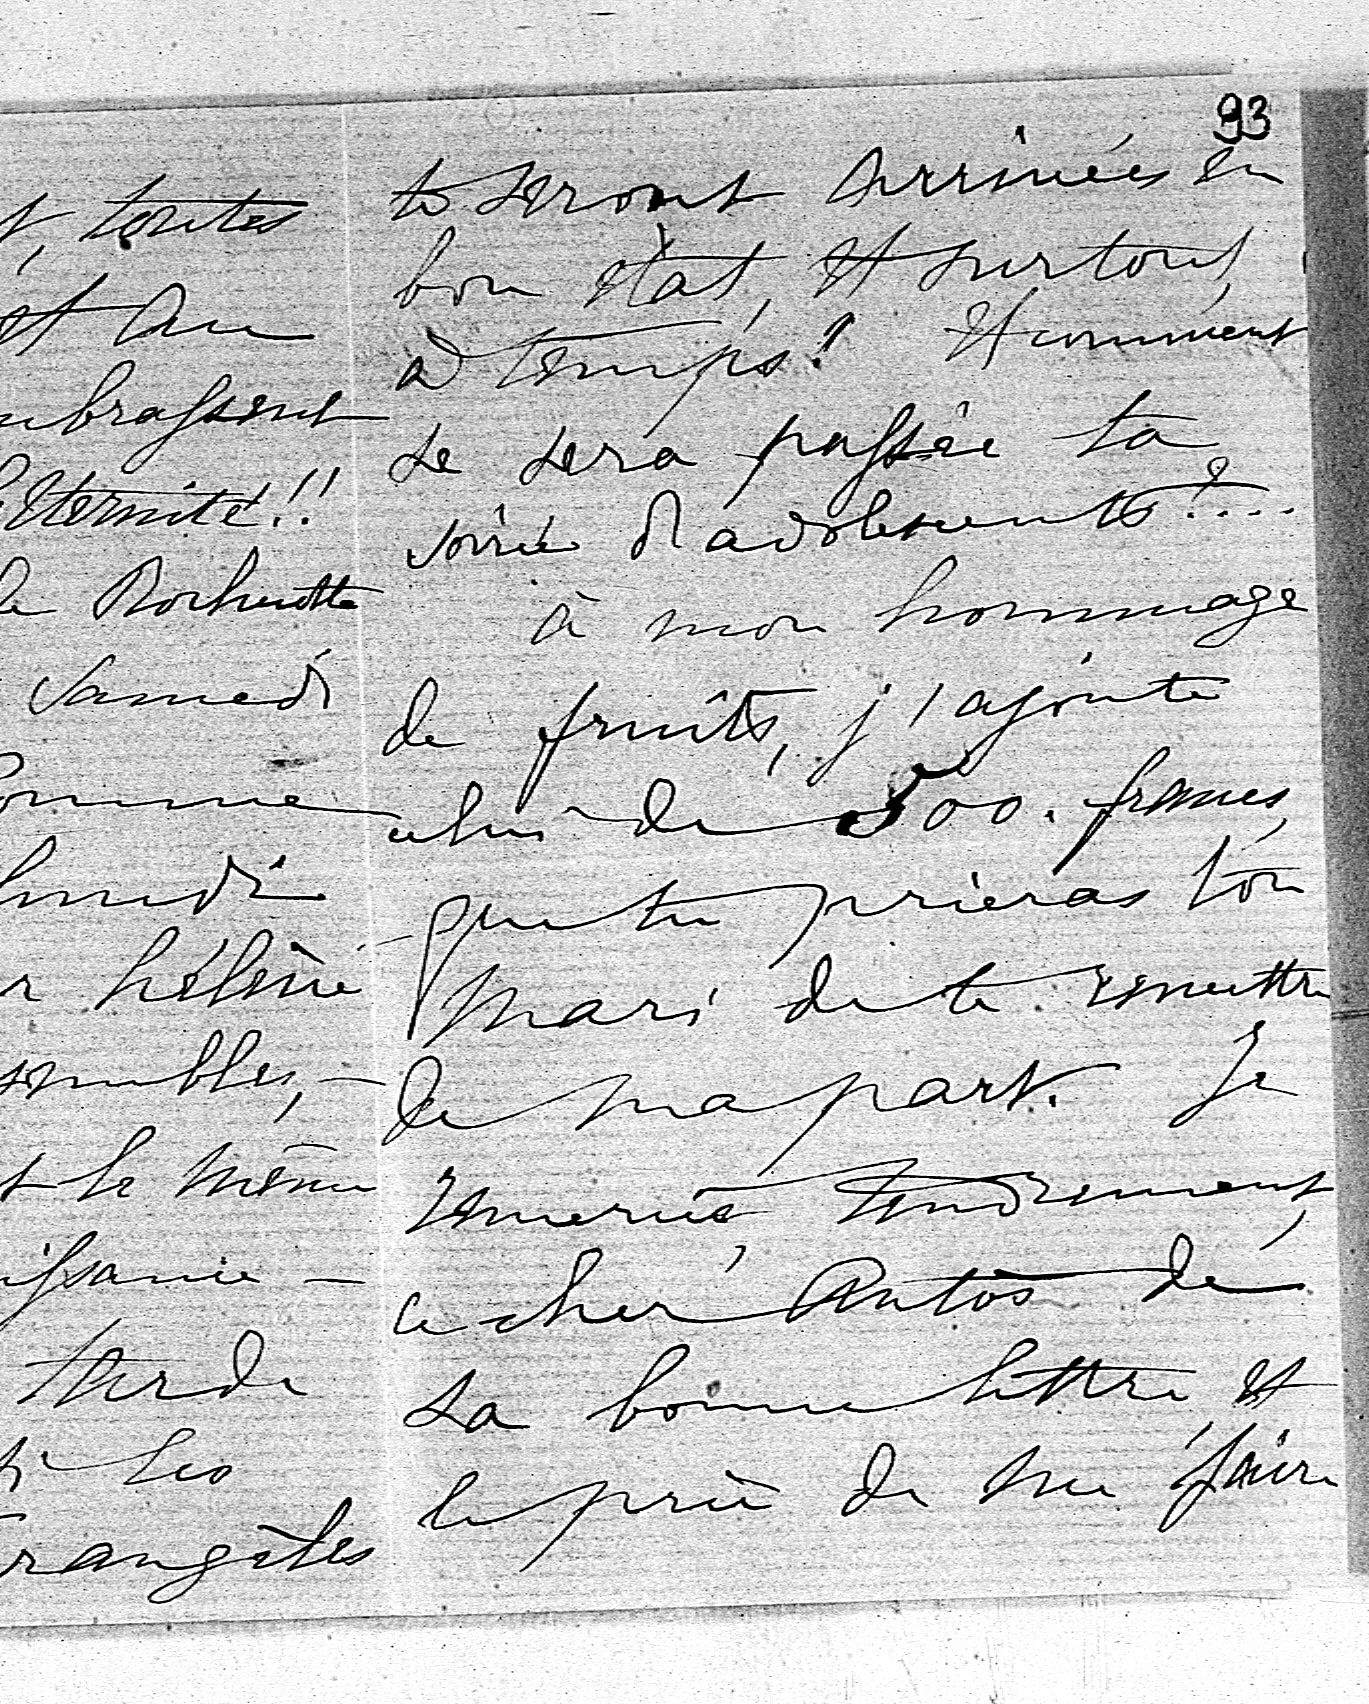 93
t, toutes
et au
mbrassent
l'éternité!!
de Rochecotte
samedi
comme
lundi
r hélène
sembles, –
t le même
issance –
tarde
les
rangètes
te seront arrivées en
bon état, et surtout,
à temps? Et comment
se sera passée ta
soirée d'adolescents?...
à mon hommage
de fruits, j'ajoute
celui de 500. francs,
que tu prieras ton
mari de te remettre
de ma part. Je
remercie tendrement,
ce cher Antos de
sa bonne lettre, et
le prie de me faire